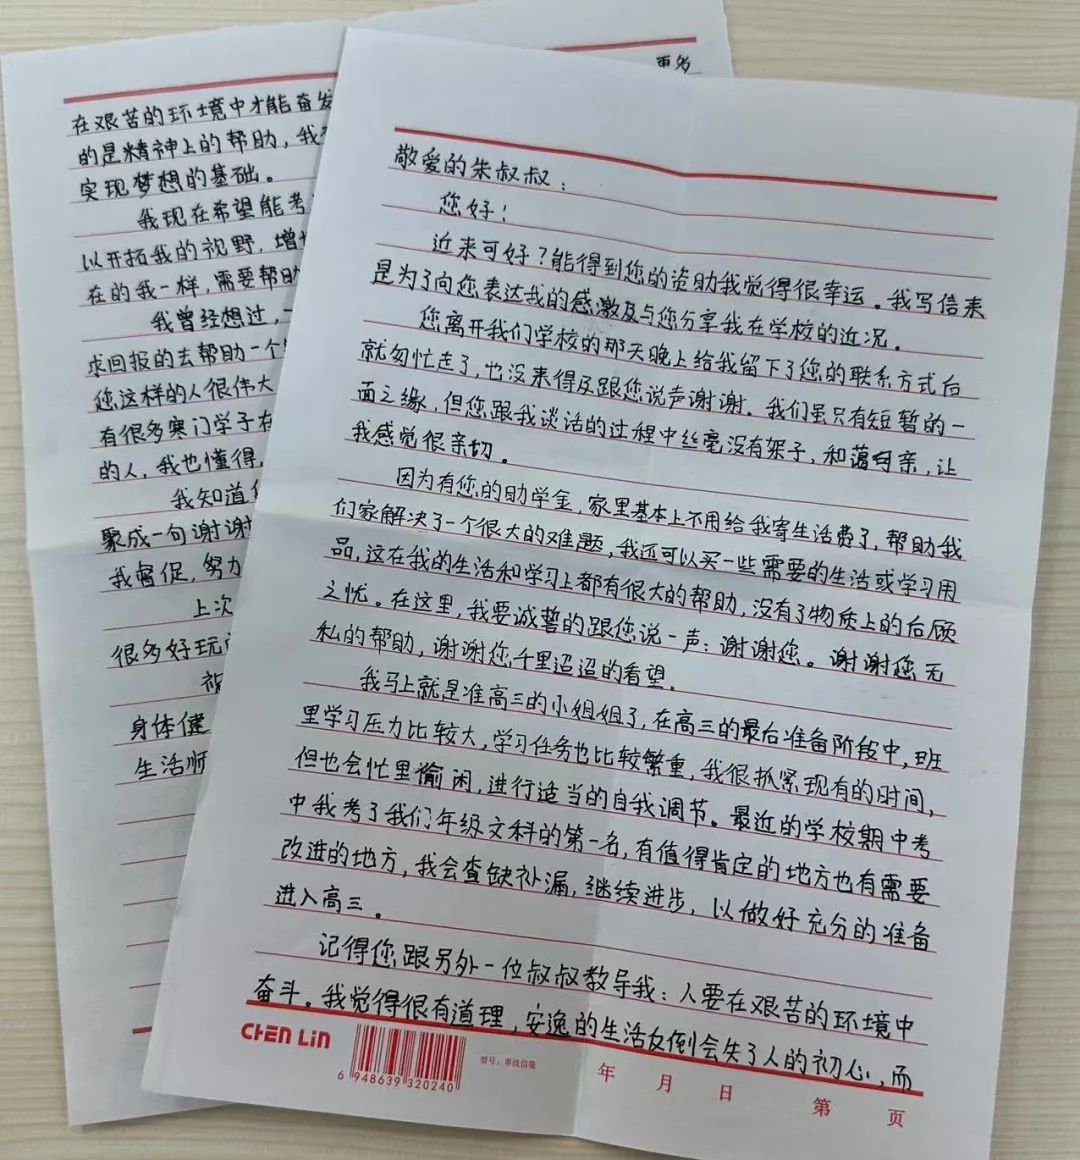 敬爱的朱叔叔：
您好！
近来可好？能得到您的资助我觉得很幸运。我写信来
是为了向您表达我的感激及与您分享我在学校的近况。
您离开我们学校的那天晚上给我留下了您的联系方式后
就匆忙走了，也没来得及跟您说声谢谢。我们虽只有短暂的一
面之缘，但您跟我谈话的过程中丝毫没有架子，和蔼可亲，让
我感觉很亲切。
因为有您的助学金，家里基本上不用给我寄生活费了，帮助我
们家解决了一个很大的难题，我还可以买一些需要的生活或学习用
品，这在我的生活和学习上都有很大的帮助，没有了物质上的后顾
之忧。在这里，我要诚挚的跟您说一声：谢谢您。谢谢您无
私的帮助，谢谢您千里迢迢的看望。
我马上就是准高三的小姐姐了，在高三的最后准备阶段中，班
里学习压力比较大，学习任务也比较繁重，我很抓紧现有的时间，
但也会忙里偷闲，进行适当的自我调节。最近的学校期中考
中我考了我们年级文科的第一名，有值得肯定的地方也有需要
改进的地方，我会查缺补漏，继续进步，以做好充分的准备
进入高三。
记得您跟另外一位叔叔教导我：人要在艰苦的环境中
奋斗。我觉得很有道理，安逸的生活反倒会失了人的初心，而
CHEN LIN
6 948639 320240
型号：单线信笺
年 月 日 第 页
更多
在艰苦的环境中才能奋发
的是精神上的帮助，我
实现梦想的基础。
我现在希望能考
以开拓我的视野，增
在的我一样，需要帮助
我曾经想过，一
求回报的去帮助一个
您这样的人很伟大
有很多寒门学子在
的人，我也懂得，
我知道
聚成一句谢谢
我督促，努力
上次
很多好玩
祝
身体健
生活顺